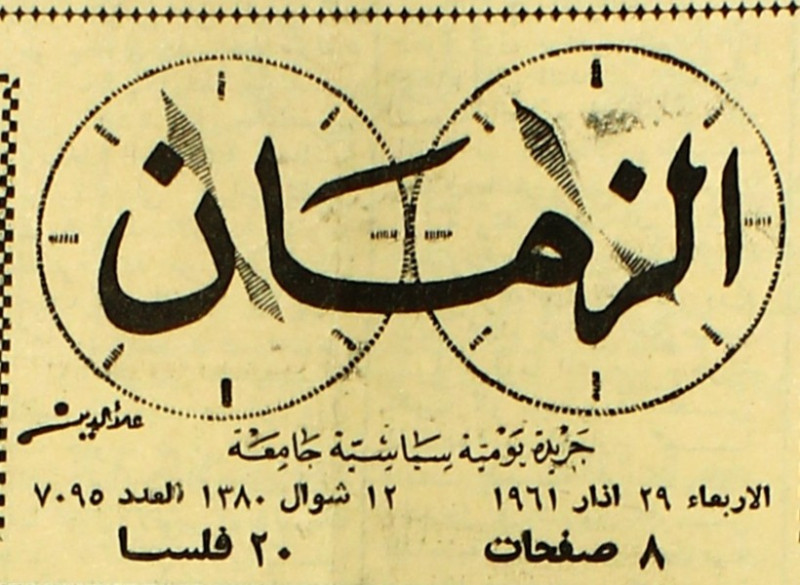 الزمان
علاء الدين
جريدة يومية سياسية جامعة
الاربعاء ٢٩ اذار ١٩٦١ ١٢ شوال ١٣٨٠ العدد ٧٠٩٥
٨ صفحات ٢٠ فلسا